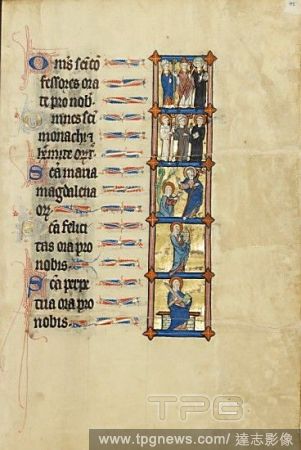 Om̄s sc̄i cō
fessores ora
te pro nob̄.
Omnes sc̄i
monachi ⁊
hermite or̄
Sc̄a maria
magdalena
or̄
Sc̄a felici
tas ora pro
nobis.
Sc̄a perpe
tua ora pro
nobis.
TPG
www.tpgnews.com/ 達志影像